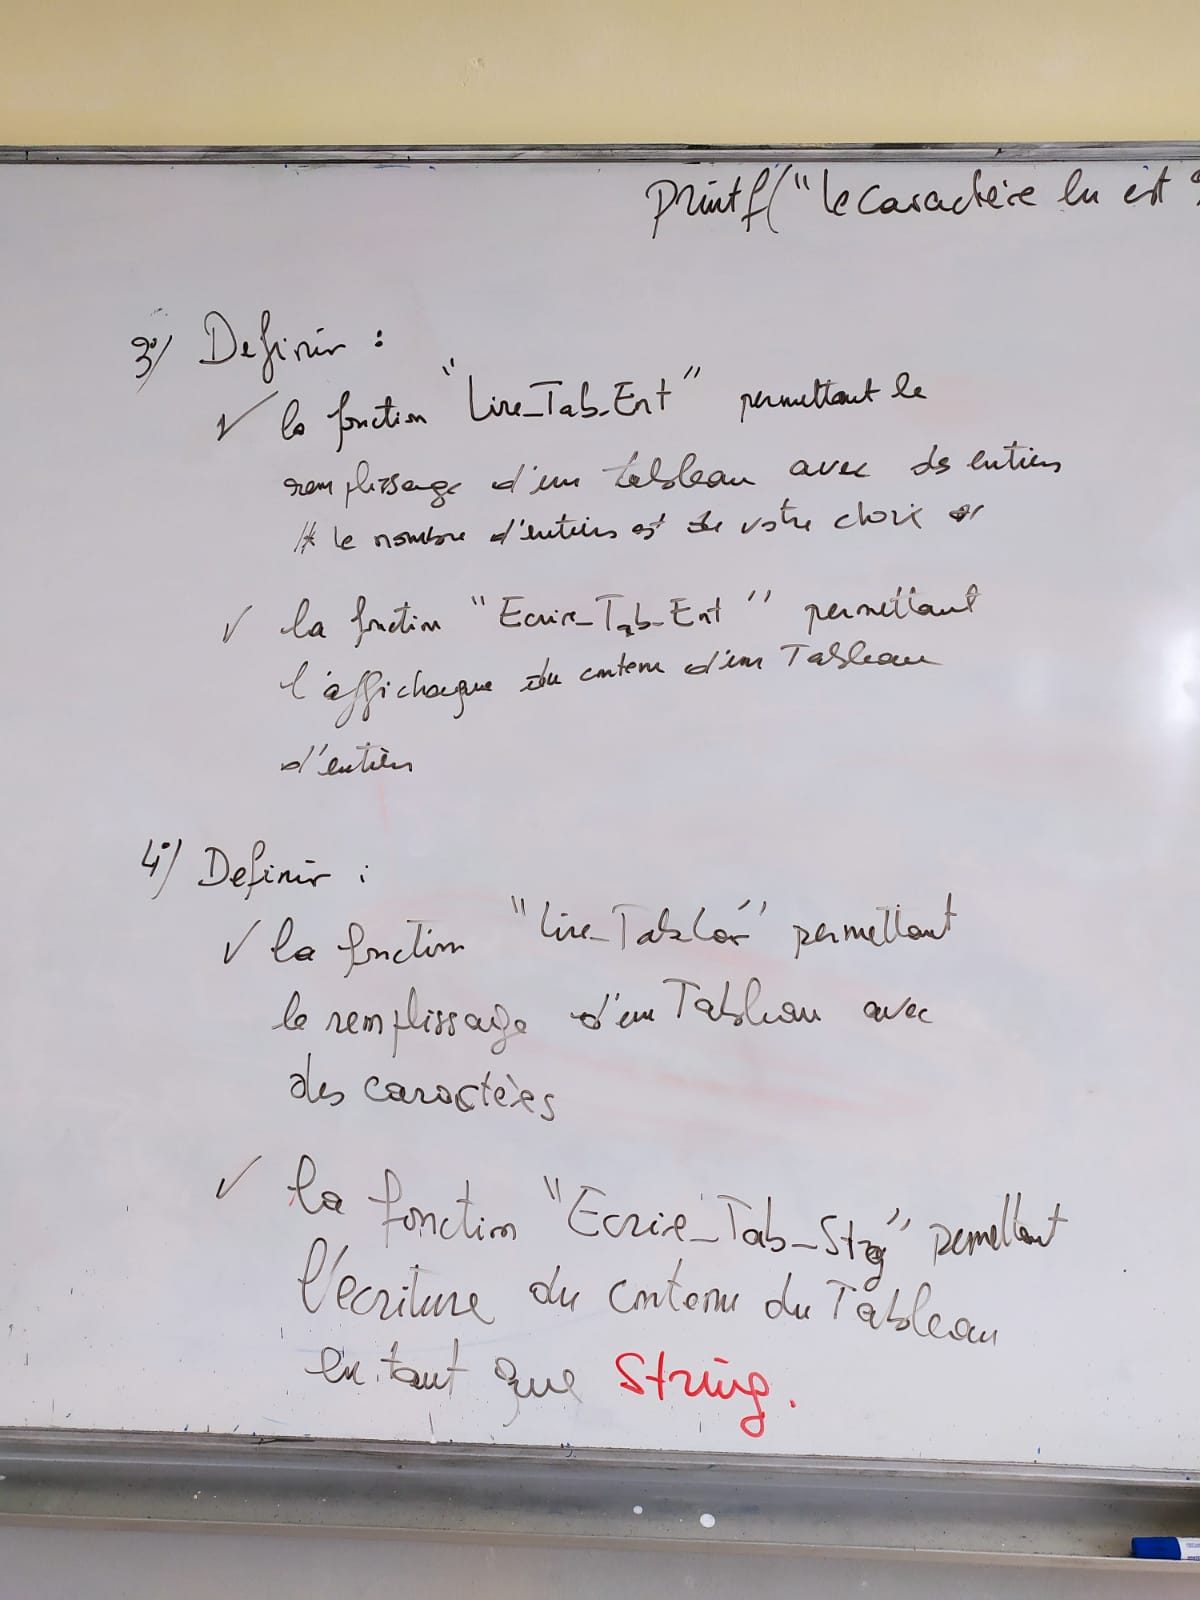 printf("le caractère lu est
3°/ Definir :
✓ la fonction "Lire_Tab_Ent" permettant le
remplissage d'un tableau avec ds entiers
/* le nombre d'entiers est de votre choix */
✓ la fonction "Ecrire_Tab_Ent" permettant
l'affichage du contenu d'un Tableau
d'entiers
4°/ Definir :
✓ la fonction "Lire_Tab_Car" permettant
le remplissage d'un Tableau avec
des caractères
✓ la fonction "Ecrire_Tab_Strg" permettant
l'ecriture du contenu du Tableau
en tant que String.